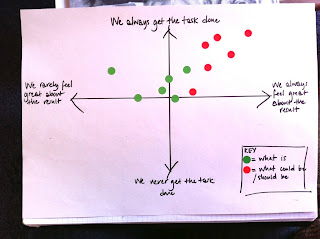 We always get the task done
We rarely feel
great about
the result
We always
feel great
about the
result
We never get the task
done
KEY
= what is
= what could be
/should be